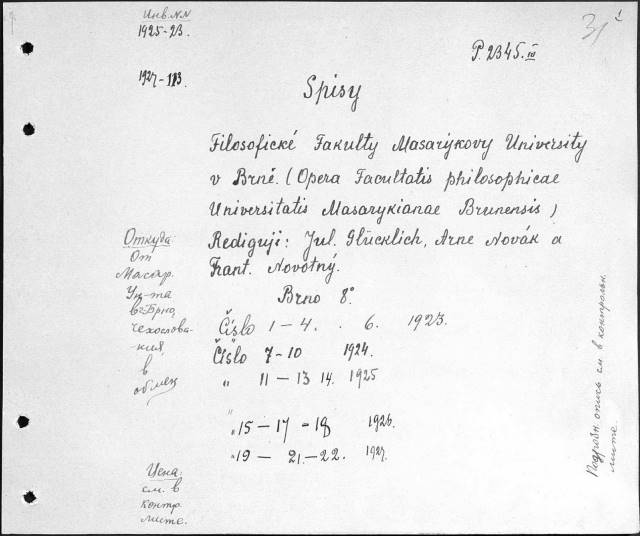 Инв. NN
1925-23.
1927-113.
31
P. 2345. IV
Spisy
Filosofické Fakulty Masarýkovy University
v Brně. (Opera Facultatis philosophicae
Universitatis Masarykianae Brunensis)
Redigují: Jul. Glücklich, Arne Novák a
Frant. Novotný.
Brno 8°.
Číslo 1-4. . 6. 1923.
Číslo 7-10 1924.
" 11-13 14. 1925
" 15-17-18 1926.
" 19 - 21.-22. 1927.
Откуда:
От
Масар.
Ун-та
в г. Брно,
Чехослова-
кия,
в
обмен
Цена:
см. в
контр.
листе.
Подробн. опись см. в контрольн.
листе.